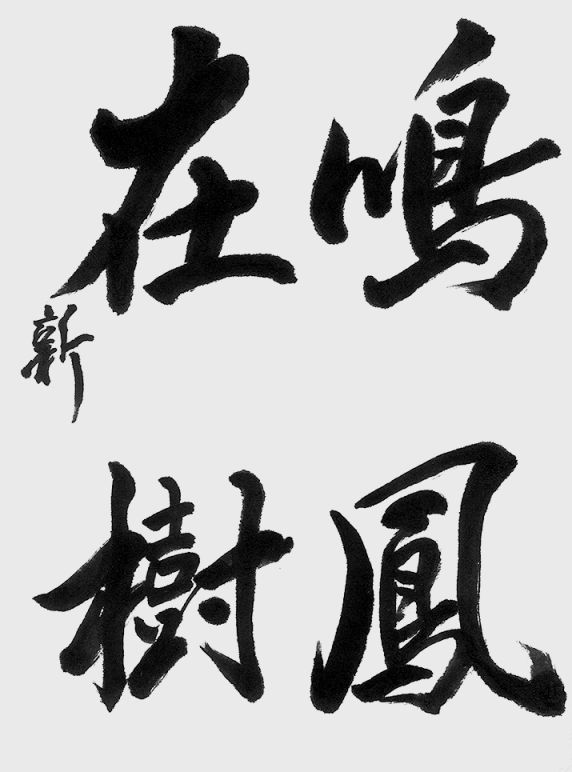 鳴鳳
在樹
新